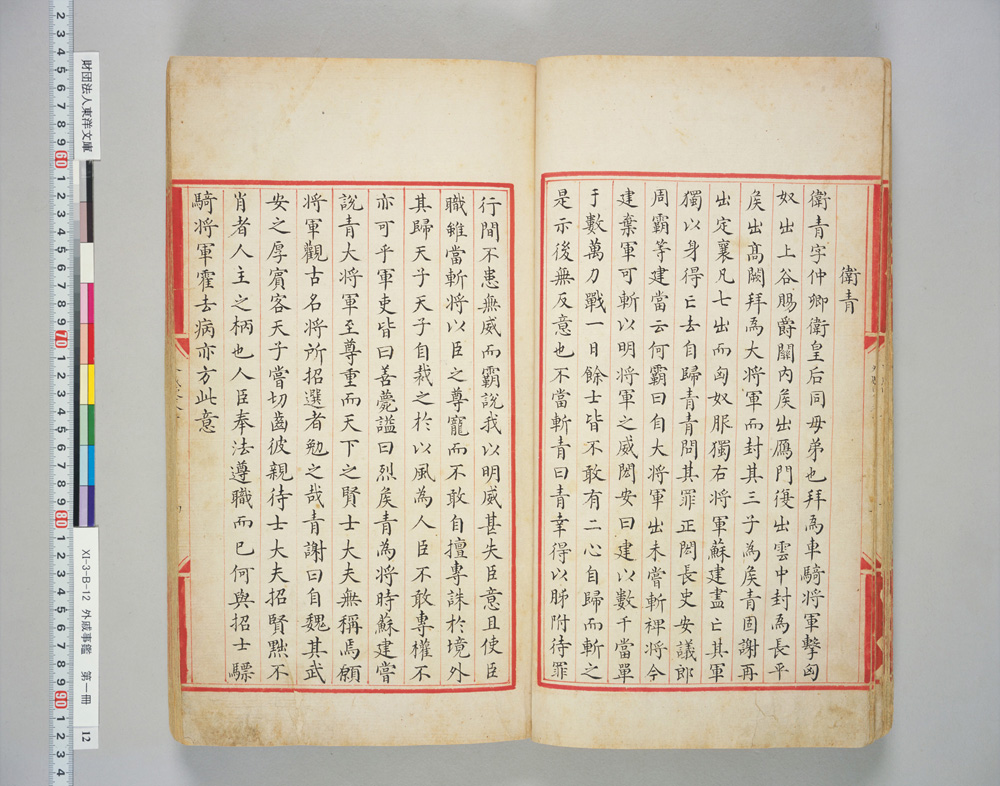 衛青
衛青字仲卿衛皇后同母弟也拜為車騎将軍擊匈
奴出上谷賜爵關内矦出鴈門復出雲中封為長平
矦出髙闕拜為大将軍而封其三子為矦青固謝再
出定襄凡七出而匈奴服獨右将軍蘇建盡亡其軍
獨以身得亡去自歸青青問其罪正閎長史安議郎
周霸等建當云何霸曰自大将軍出未嘗斬裨将今
建棄軍可斬以明将軍之威閎安曰建以數千當單
于數萬力戰一日餘士皆不敢有二心自歸而斬之
是示後無反意也不當斬青曰青幸得以肺附待罪
行間不患無威而霸說我以明威甚失臣意且使臣
職雖當斬将以臣之尊寵而不敢自擅專誅於境外
其歸天子天子自裁之於以風為人臣不敢專權不
亦可乎軍吏皆曰善薨謚曰烈矦青為将時蘇建嘗
說青大将軍至尊重而天下之賢士大夫無稱焉願
将軍觀古名将所招選者勉之哉青謝曰自魏其武
安之厚賓客天子嘗切齒彼親待士大夫招賢黜不
肖者人主之柄也人臣奉法遵職而已何與招士驃
騎将軍霍去病亦方此意
財団法人東洋文庫
XI-3-B-12 外戚事鑑 第一冊
12
2 3 4 5 6 7 8 9 60 1 2 3 4 5 6 7 8 9 70 1 2 3 4 5 6 7 8 9 80 1 2 3 4 5 6 7 8 9 90 1 2 3 4